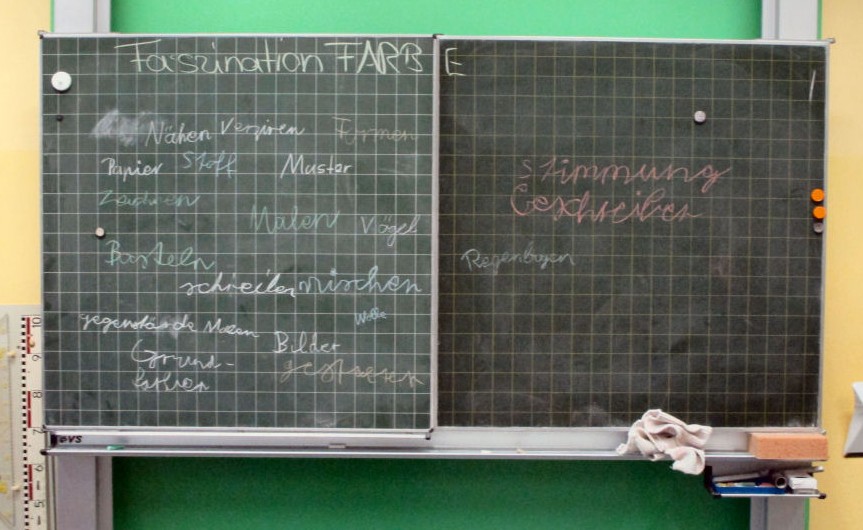 Faszination FARBE
Nähen Verziren Formen
Papier Stoff Muster
Zeichnen
Malen Vögel
Basteln
schreiben mischen
Wolle
gegenstände Malen
Bilder
Grund-
farben
gestalten
Stimmung
Beschreiben
Regenbogen
VS
10
9
8
7
6
5